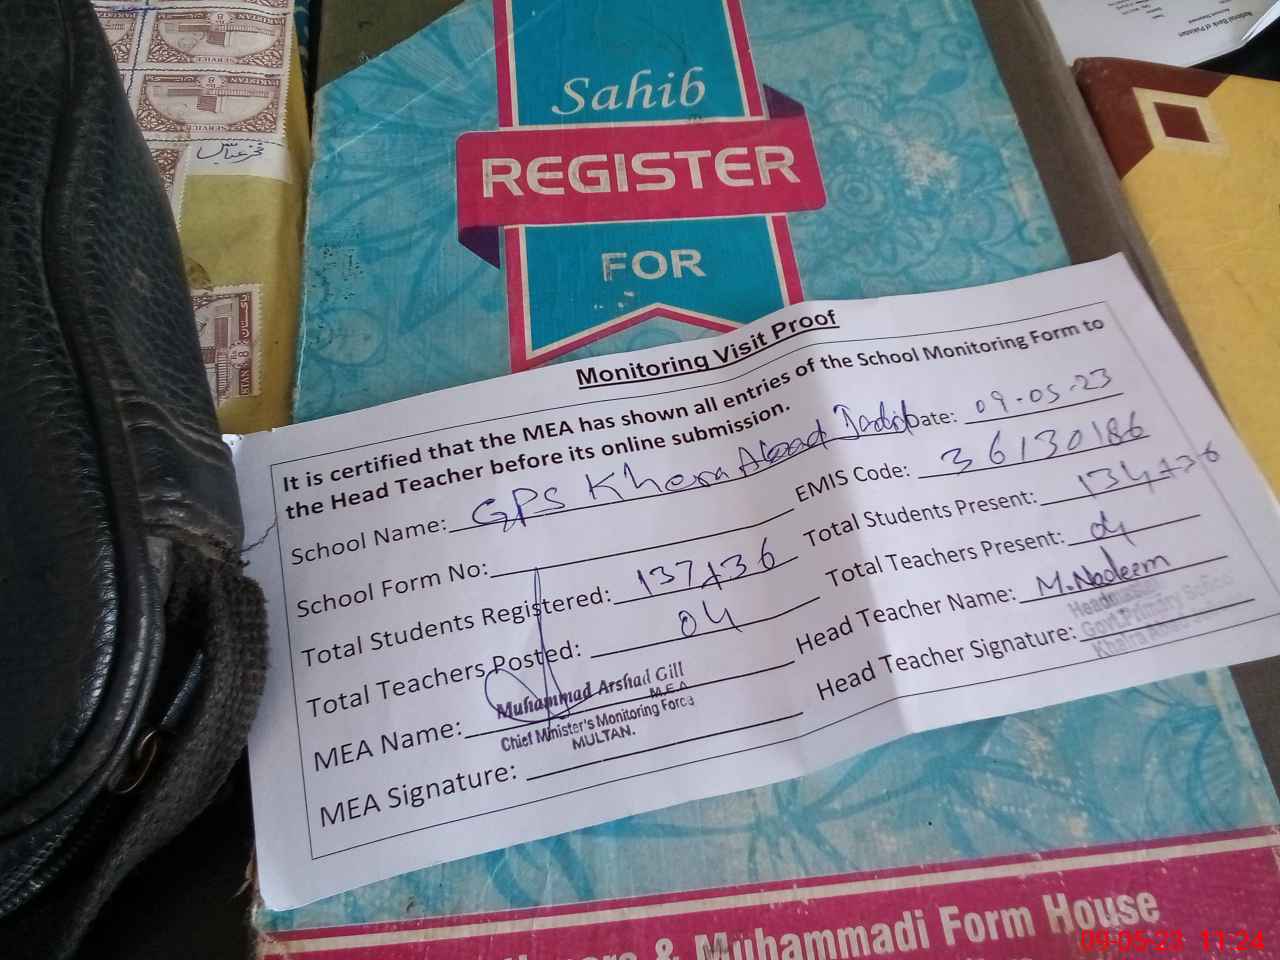 Sahib
REGISTER
FOR
Monitoring Visit Proof
It is certified that the MEA has shown all entries of the School Monitoring Form to
the Head Teacher before its online submission.
School Name: GPS Khera Abad Date: 09-05-23
School Form No: EMIS Code: 36130186
Total Students Registered: 137+36 Total Students Present: 134+36
Total Teachers Posted: 04 Total Teachers Present: 04
MEA Name: Muhammad Arshad Gill Head Teacher Name: M. Nadeem
M.E.A
Chief Minister's Monitoring Force
MULTAN.
MEA Signature: Head Teacher Signature:
Headmaster
Govt. Primary School
& Muhammadi Form House
National Bank of Pakistan
PAKISTAN
SERVICE
PAKISTAN
SERVICE
09-05-23 11:24